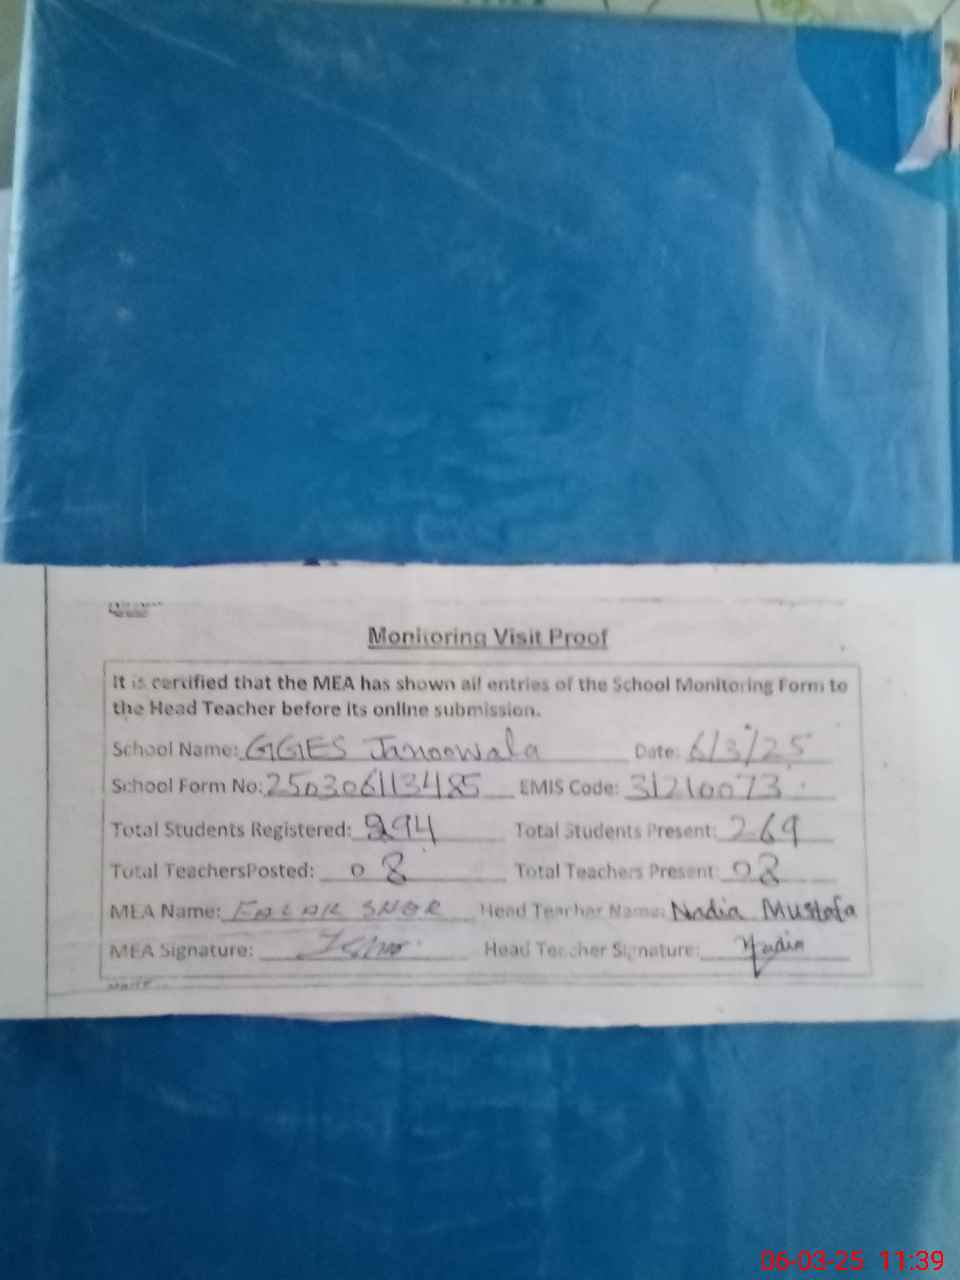 Monitoring Visit Proof
It is certified that the MEA has shown all entries of the School Monitoring Form to
the Head Teacher before its online submission.
School Name: GGES Janoowala Date: 6/3/25
School Form No: 250306113485 EMIS Code: 31210073
Total Students Registered: 294 Total Students Present: 269
Total TeachersPosted: 08 Total Teachers Present: 08
MEA Name: Head Teacher Name: Nadia Mustafa
MEA Signature: Head Teacher Signature: Nadia
06-03-25 11:39